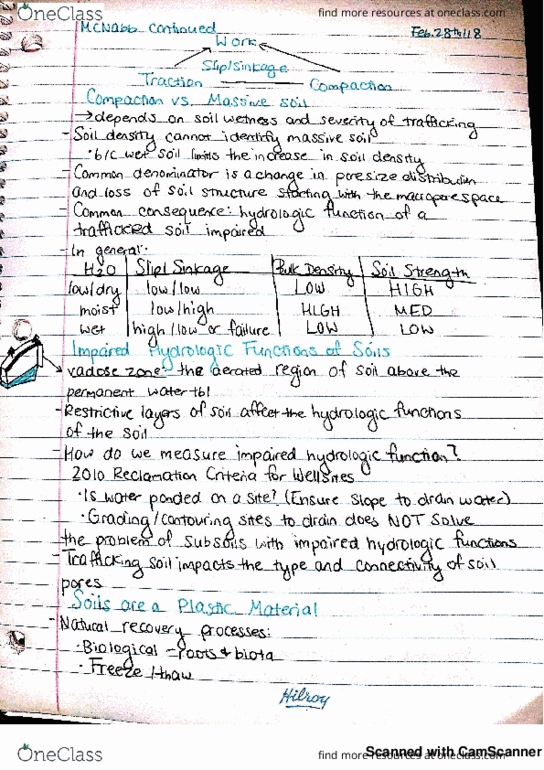 OneClass
find more resources at oneclass.com
McNabb continued
Feb. 28th/18
Work
Slip/Sinkage
Traction Compaction
Compaction vs. Massive soil
→ depends on soil wetness and severity of trafficking
- Soil density cannot identify massive soil
• b/c wet soil limits the increase in soil density
- Common denominator is a change in poresize distribution
and loss of soil structure starting with the macropore space
- Common consequence: hydrologic function of a
trafficked soil impaired
- In general:
H2O Slip/Sinkage Bulk Density Soil Strength
low/dry low/low LOW HIGH
moist low/high HIGH MED
wet high/low or failure LOW LOW
Impaired Hydrologic Functions of Soils
vadose zone: the aerated region of soil above the
permanent water tbl
- Restrictive layers of soil affect the hydrologic functions
of the soil
- How do we measure impaired hydrologic function?
2010 Reclamation Criteria for Wellsites
• Is water ponded on a site? (Ensure slope to drain water)
• Grading/contouring sites to drain does NOT solve
the problem of subsoils with impaired hydrologic functions
- Trafficking soil impacts the type and connectivity of soil
pores
Soils are a Plastic Material
- Natural recovery processes:
• Biological - roots & biota
• Freeze/thaw
Hilroy
Scanned with CamScanner
OneClass
find more resources at oneclass.com